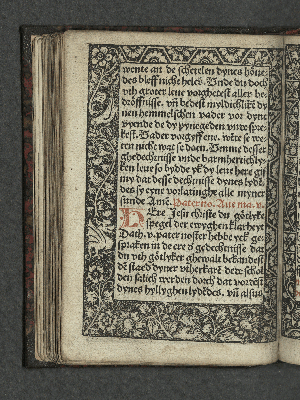 wente an de scherelen dynes höue-
des bleff nicht heles. Vnde du doch
vth groter leue vorghetest aller be-
dröffnisse. vn̄ bedest myldichlikē dy
nen hemmelschen vader vor dyne
vyende de dy pynegeden vnde spre-
kest. Vader vorgyff ene. wēte se we
ten nicht wat se doen. Vmme desser
ghedechtnisse vnde barmherichly-
ken leue so bydde yk dy leue here gif
my dat desse dechtnisse dynes lydē-
des sy eyns vorlatinghe alle myner
sunde Amē. Pater no. Aue ma. v.
DEre Jesu christe du götlyke
spegel der ewyghen klarheyt
Dath. v. pater noster hebbe yck ge-
spraken in de ere vn̄ gedechtnisse dat
du vth götlyker ghewalt bekandest
dē staed dyner vtherkarē dere schol
den salich werden dorch dat vordēst
dynes hyllyghen lydēdes. vn̄ alsus